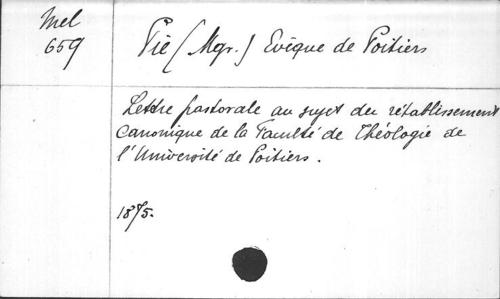 Mel
659
Pie (Mgr.) Evêque de Poitiers
Lettre pastorale au sujet du rétablissement
canonique de la Faculté de Théologie de
l'Université de Poitiers.
1875.